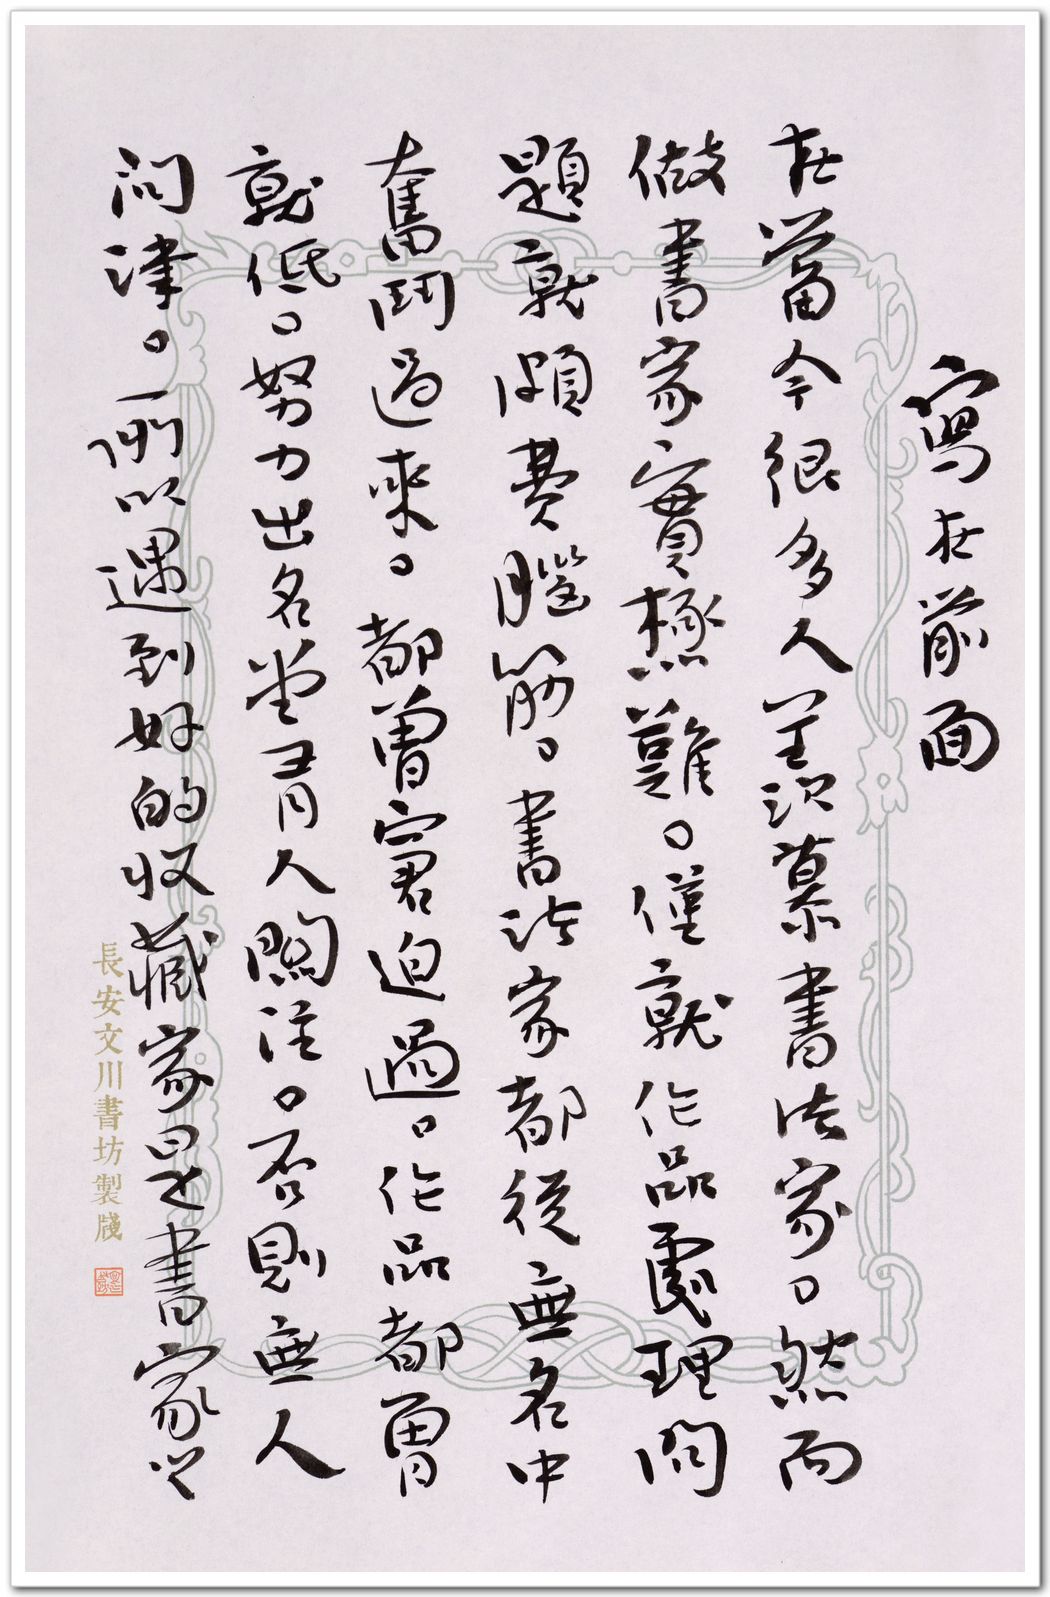 寫在前面
在當今很多人羨慕書法家。然而
做書家實極難。僅就作品處理問
題就頗費腦筋。書法家都從無名中
奮鬥過來。都曾窘迫過。作品都曾
就低。努力出名堂有人關注。否則無人
問津。所以遇到好的收藏家是書家之
長安文川書坊製牋